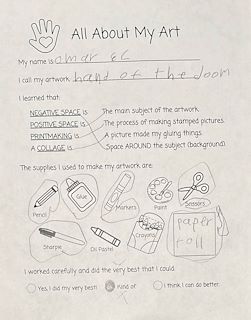 All About My Art
My name is omar ec
I call my artwork hand of the doom
I learned that:
NEGATIVE SPACE is The main subject of the artwork
POSITIVE SPACE is The process of making stamped pictures.
PRINTMAKING is A picture made my gluing things
A COLLAGE is Space AROUND the subject (background)
The supplies I used to make my artwork are:
Pencil
Glue
Markers
Paint
Scissors
Sharpie
Oil Pastel
Crayons
paper
I worked carefully and did the very best that I could
Yes, I did my very best!
Kind of
I think I can do better.